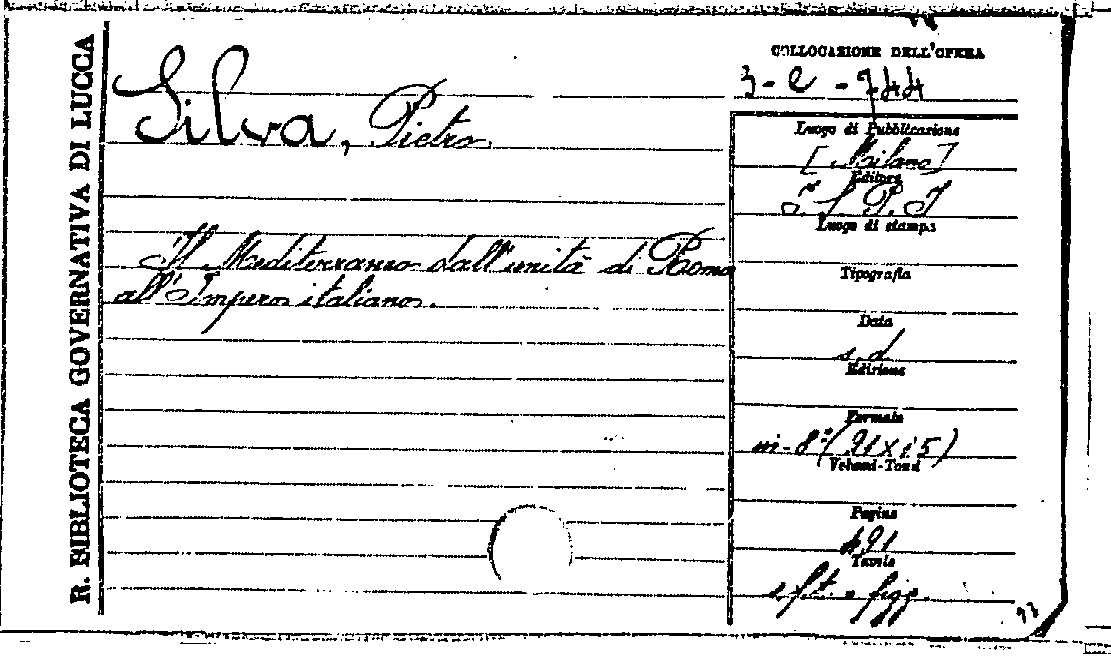 R. BIBLIOTECA GOVERNATIVA DI LUCCA
Silva, Pietro
Il Mediterraneo dall'unità di Roma
all'Impero italiano.
COLLOCAZIONE DELL'OPERA
3-e-744
Luogo di Pubblicazione
[Milano]
Editore
I.S.P.I
Luogo di stampa
Tipografia
Data
s.d
Edizione
Formato
in-8°(21x15)
Volumi-Tomi
Pagine
491
Tavole
e figg.